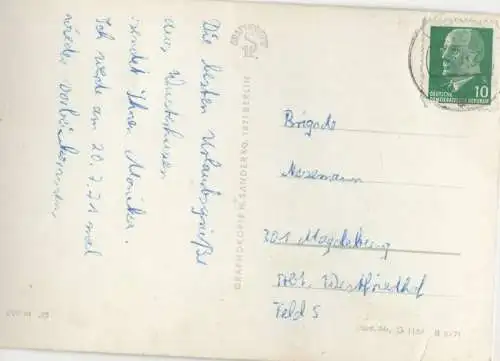 Die besten Urlaubsgrüße
aus Wusterhusen
sendet Ihnen Monika.
Ich werde am 20.7.71 mal
wieder vorbeikommen.
GRAPHOKOPIE H. SANDER KG. 1321 BERLIN
10
DEUTSCHE
DEMOKRATISCHE REPUBLIK
Brigade
301 Magdeburg
Westfriedhof
Feld 5